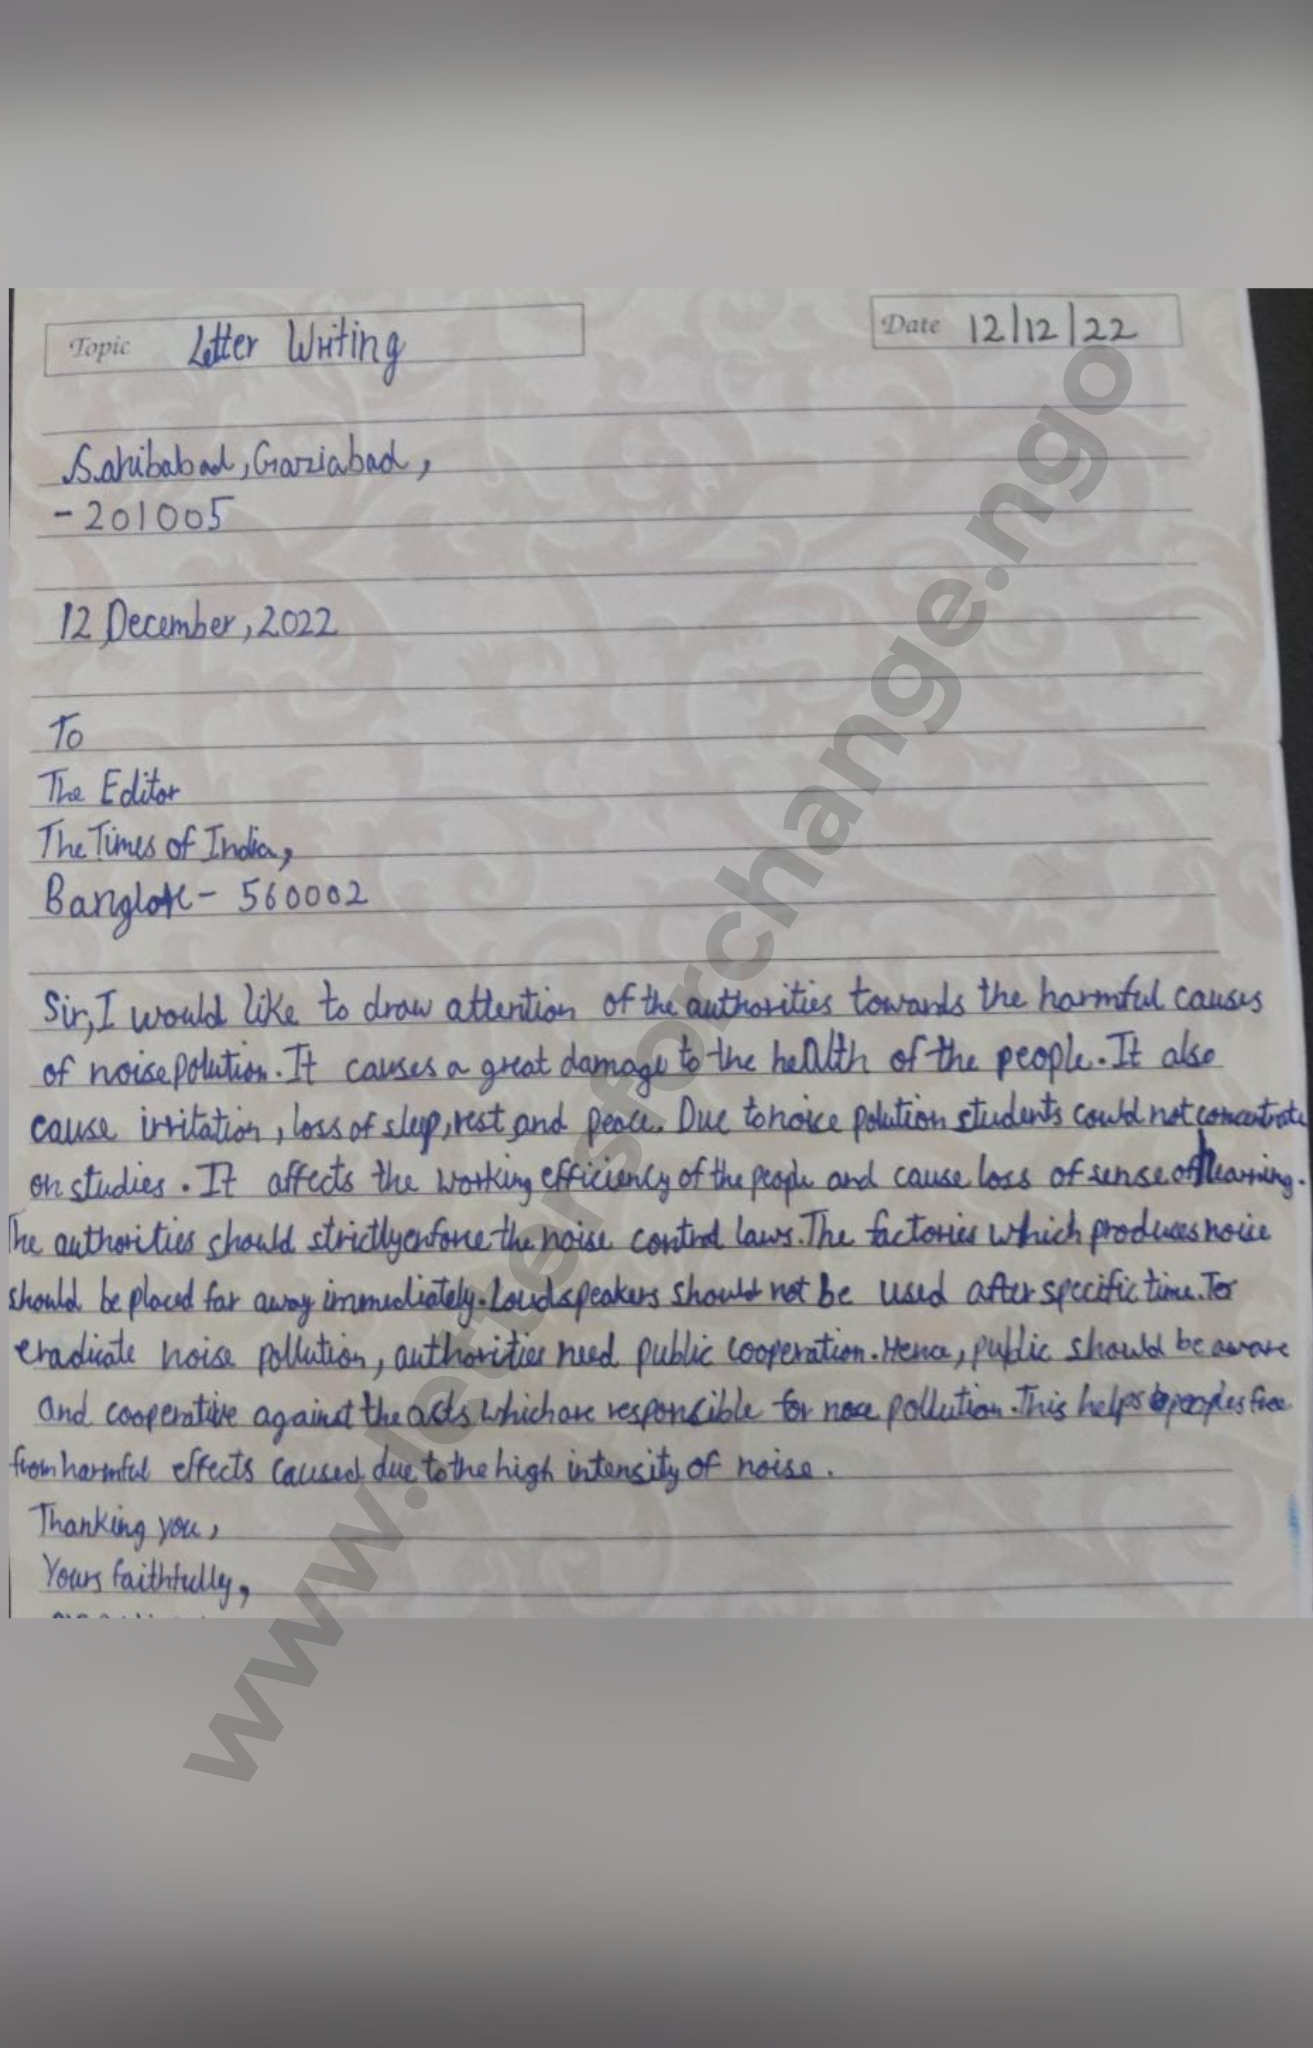 Topic Letter Writing
Date 12/12/22
Sahibabad, Gaziabad,
- 201005
12, December, 2022
To
The Editor
The Times of India,
Banglore - 560002
Sir, I would like to draw attention of the authorities towards the harmful causes
of noise polution. It causes a great damage to the health of the people. It also
cause irritation, loss of sleep, rest and peace. Due to noice polution students could not concentrate
on studies. It affects the working efficiency of the people and cause loss of sense of hearning.
The authorities should strictly enforce the noise control laws. The factories which produces noice
should be placed far away immediately. Loudspeakers should not be used after specific time. To
eradicate noise pollution, authorities need public cooperation. Hence, public should be aware
and cooperative against the acts which are responsible for noce pollution. This helps peoples free
from harmful effects caused due to the high intensity of noise.
Thanking you,
Yours faithfully,
www.lettersforchange.ngo